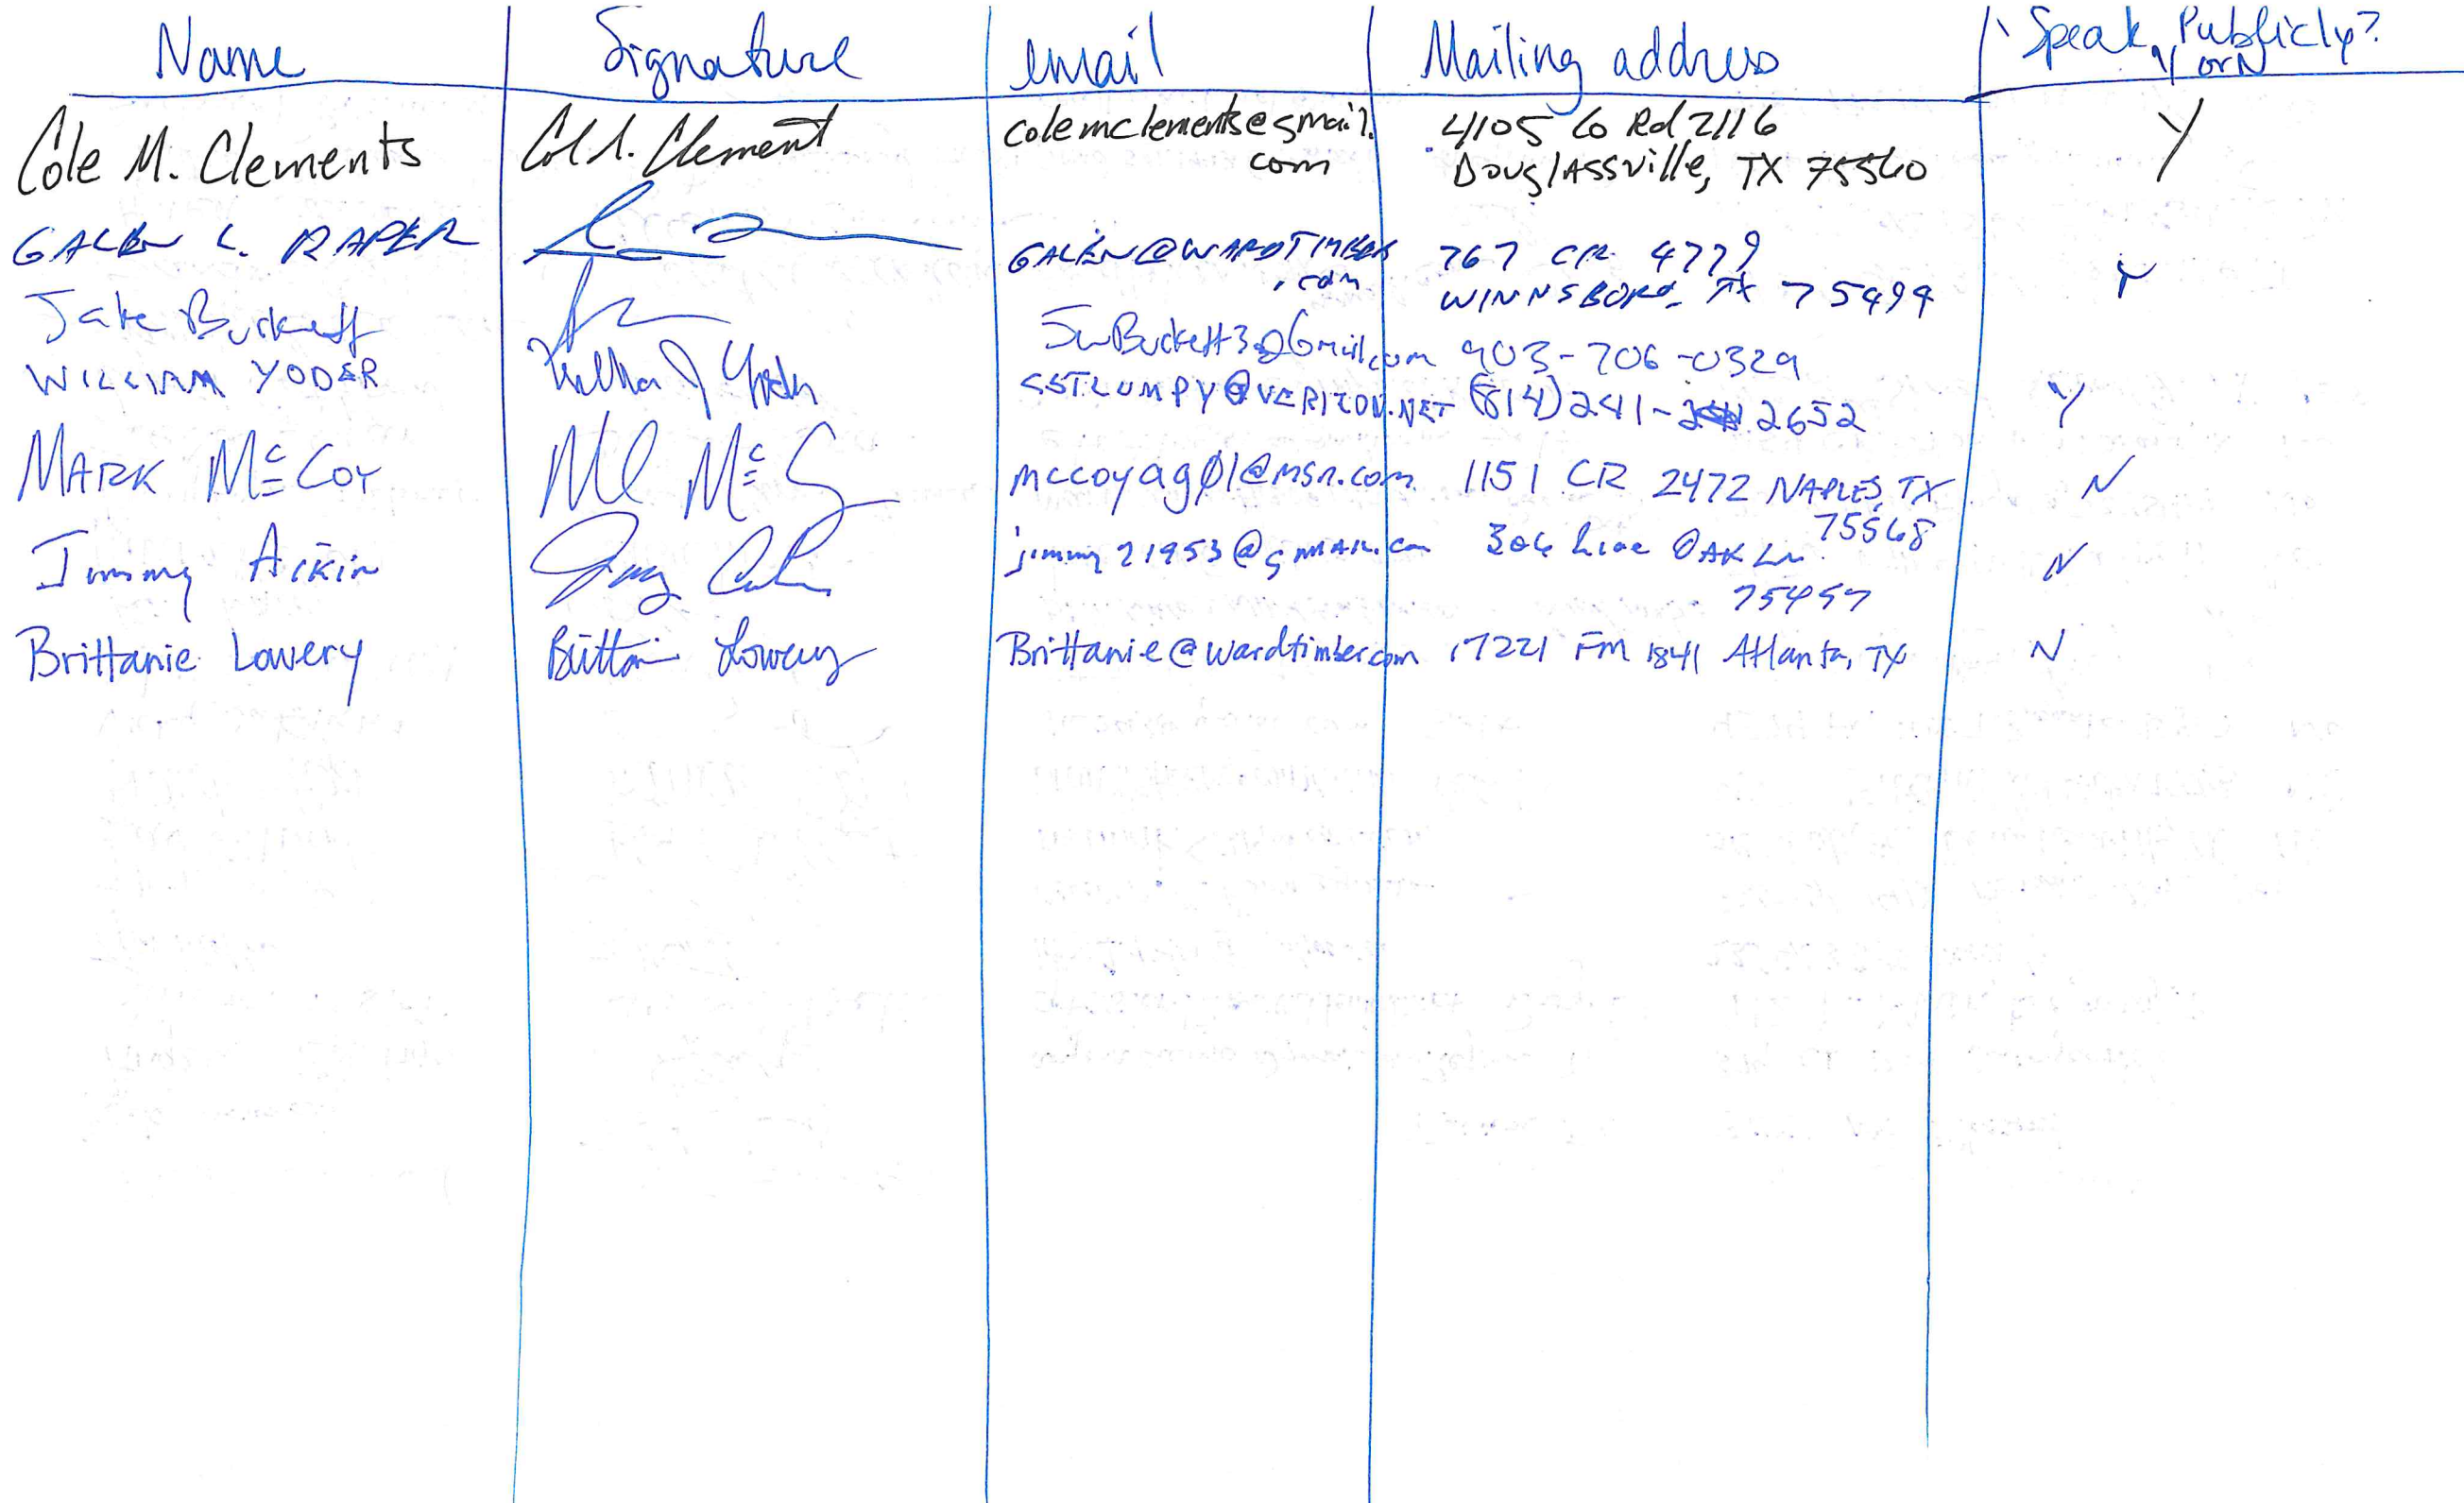 Name Signature email Mailing address Speak Publicly?
Y or N
Cole M. Clements Col M. Clement colemclements@gmail. 4105 Co Rd 2116 Y
com Douglassville, TX 75560
GALEN L. RAPER GALEN@WARDTIMBER 767 CR 4779 Y
.com WINNSBORO, TX 75494
Jake Burkett JwBurkett3@Gmail.com 903-706-0329
WILLIAM YODER SSTLUMPY@VERIZON.NET (814) 241-2652 Y
MARK McCOY Mk McCoy mccoyag01@msn.com 1151 CR 2472 NAPLES, TX N
75568
Jimmy Aikin jimmy21953@gmail.com 306 Live OAK Ln N
75457
Brittanie Lowery Brittanie Lowery Brittanie@wardtimber.com 17221 Fm 1841 Atlanta, TX N